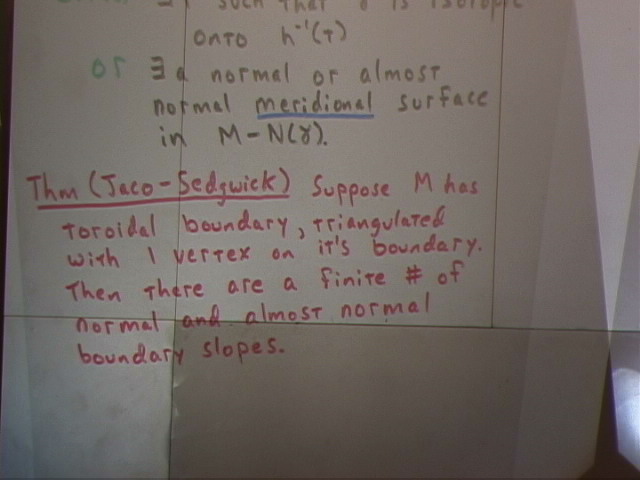 such that γ is isotopic
onto h⁻¹(τ)
or ∃ a normal or almost
normal meridional surface
in M-N(γ).
Thm (Jaco-Sedgwick) Suppose M has
toroidal boundary, triangulated
with 1 vertex on it's boundary.
Then there are a finite # of
normal and almost normal
boundary slopes.